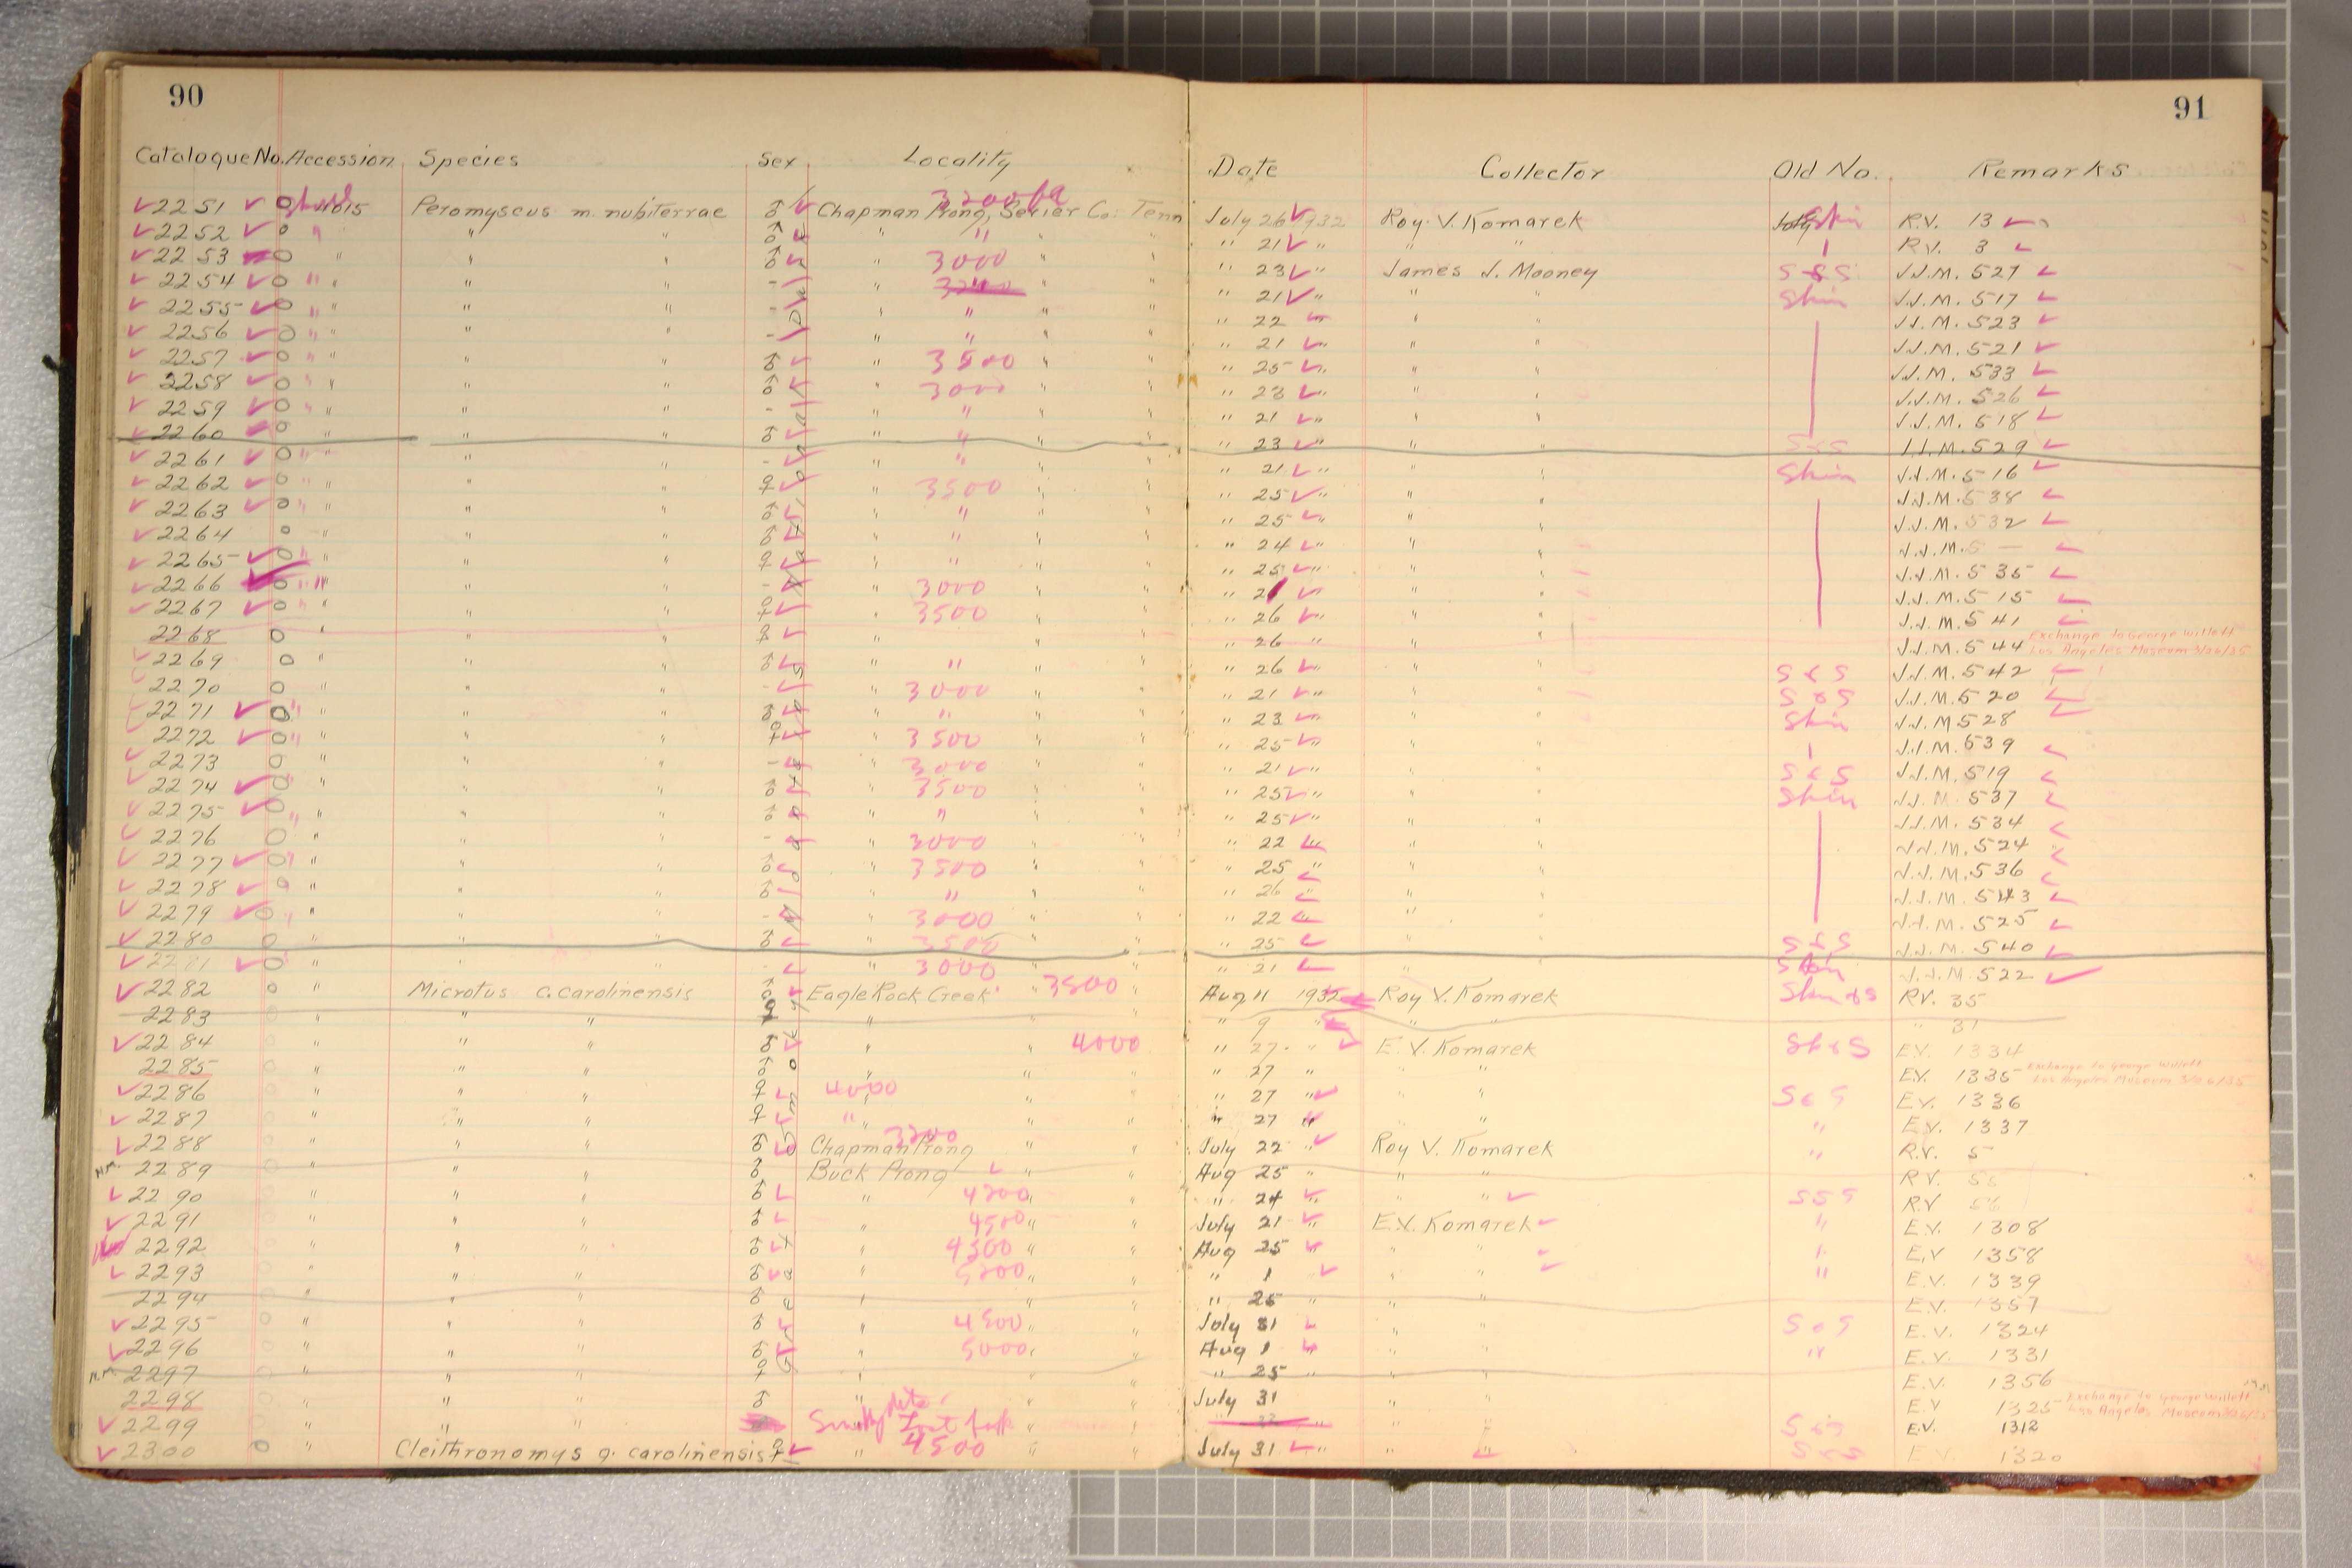 90
91
Catalogue No. Accession Species Sex Locality Date Collector Old No. Remarks
3200 ft
2251 O 4015 Peromyscus m. nubiterrae ♂ Chapman Prong, Sevier Co. Tenn July 26 1932 Roy V. Komarek Skin R.V. 13
2252 O " " " ♂ " " " " " 21 " " " R.V. 3
2253 O " " " ♂ " 3000 " " " 23 " James J. Mooney S & S J.J.M. 527
2254 O " " " - " " " " 21 " " " Skin J.J.M. 517
2255 O " " " - " " " " " 22 " " " J.J.M. 523
2256 O " " " - " " " " " 21 " " " J.J.M. 521
2257 O " " " ♂ " 3500 " " " 25 " " " J.J.M. 533
2258 O " " " ♂ " 3000 " " " 23 " " " J.J.M. 526
2259 O " " " - " " " " " 21 " " " J.J.M. 518
2260 O " " " ♂ " " " " " 23 " " " S & S J.J.M. 529
2261 O " " " - " " " " " 21 " " " Skin J.J.M. 516
2262 O " " " ♀ " 3500 " " " 25 " " " J.J.M. 538
2263 O " " " ♂ " " " " " 25 " " " J.J.M. 532
2264 O " " ♂ " " " " " 24 " " " J.J.M. 5 —
2265 O " " " ♀ " " " " " 25 " " " J.J.M. 535
2266 O " " " - " 3000 " " " 21 " " J.J.M. 515
2267 O " " " ♀ " 3500 " " " 26 " " " J.J.M. 541
2268 O " " " ♀ " " " " 26 " " " J.J.M. 544 Exchange to George Willett
Los Angeles Museum 3/26/35
2269 O " " " ♂ " " " " " 26 " " " S & S J.J.M. 542
2270 O " " " - " 3000 " " " 21 " " " S & S J.J.M. 520
2271 O " " " ♂ " " " " " 23 " " " Skin J.J.M. 528
2272 O " " " ♀ " 3500 " " " 25 " " " J.J.M. 539
2273 O " " " - " 3000 " " " 21 " " " S & S J.J.M. 519
2274 O " " " ♂ " 3500 " " " 25 " " " Skin J.J.M. 537
2275 O " " " ♂ " " " " " 25 " " " J.J.M. 534
2276 O " " " - " 3000 " " " 22 " " " J.J.M. 524
2277 O " " " ♂ " 3500 " " " 25 " " " J.J.M. 536
2278 O " " " ♂ " " " " " 26 " " " J.J.M. 543
2279 O " " " - " 3000 " " " 22 " " " J.J.M. 525
2280 O " " " ♂ " 3500 " " " 25 " " S & S J.J.M. 540
2281 O " " " - " 3000 " " " 21 " " Skin J.J.M. 522
2282 O " Microtus c. carolinensis ♂ Eagle Rock Creek " 3500 " Aug 11 1932 Roy V. Komarek Skin & S R.V. 35
2283 O " " " " " " " 9 " " " " 31
2284 O " " " ♂ " " 4000 " " 27 " E. V. Komarek Sk & S E.V. 1334
2285 O " " " ♂ " " " " 27 " " " E.V. 1335 Exchange to George Willett
Los Angeles Museum 3/26/35
2286 O " " " ♀ 4000 " " " 27 " " " S & S E.V. 1336
2287 O " " " ♀ " " " " 27 " " " " E.V. 1337
3200
2288 O " " " ♂ Chapman Prong " " July 22 " Roy V. Komarek " R.V. 5
N.M. 2289 O " " " ♂ Buck Prong " " Aug 25 " " " R.V.
2290 O " " " ♂ " 4200 " " " 24 " " " R.V.
2291 O " " " ♂ " 4500 " " July 21 " E.V. Komarek " E.V. 1308
2292 O " " " ♂ " 4300 " " Aug 25 " " " " E.V. 1358
2293 O " " " ♂ " 5200 " " " 1 " " " " E.V. 1339
2294 O " " " ♂ " " " " 25 " " " E.V. 1357
2295 O " " " ♂ " 4500 " " July 31 " " " S & S E.V. 1324
2296 O " " " ♂ " 5000 " " Aug 1 " " " " E.V. 1331
N.M. 2297 O " " " ♀ " " " " 25 " " " E.V. 1356
2298 O " " " ♂ " " July 31 " " E.V. 1325 Exchange to George Willett
Los Angeles Museum 3/26/35
2299 O " " " " " " S & S E.V. 1312
2300 O " Cleithronomys g. carolinensis ♀ " 4500 " " July 31 " " " S & S E.V. 1320